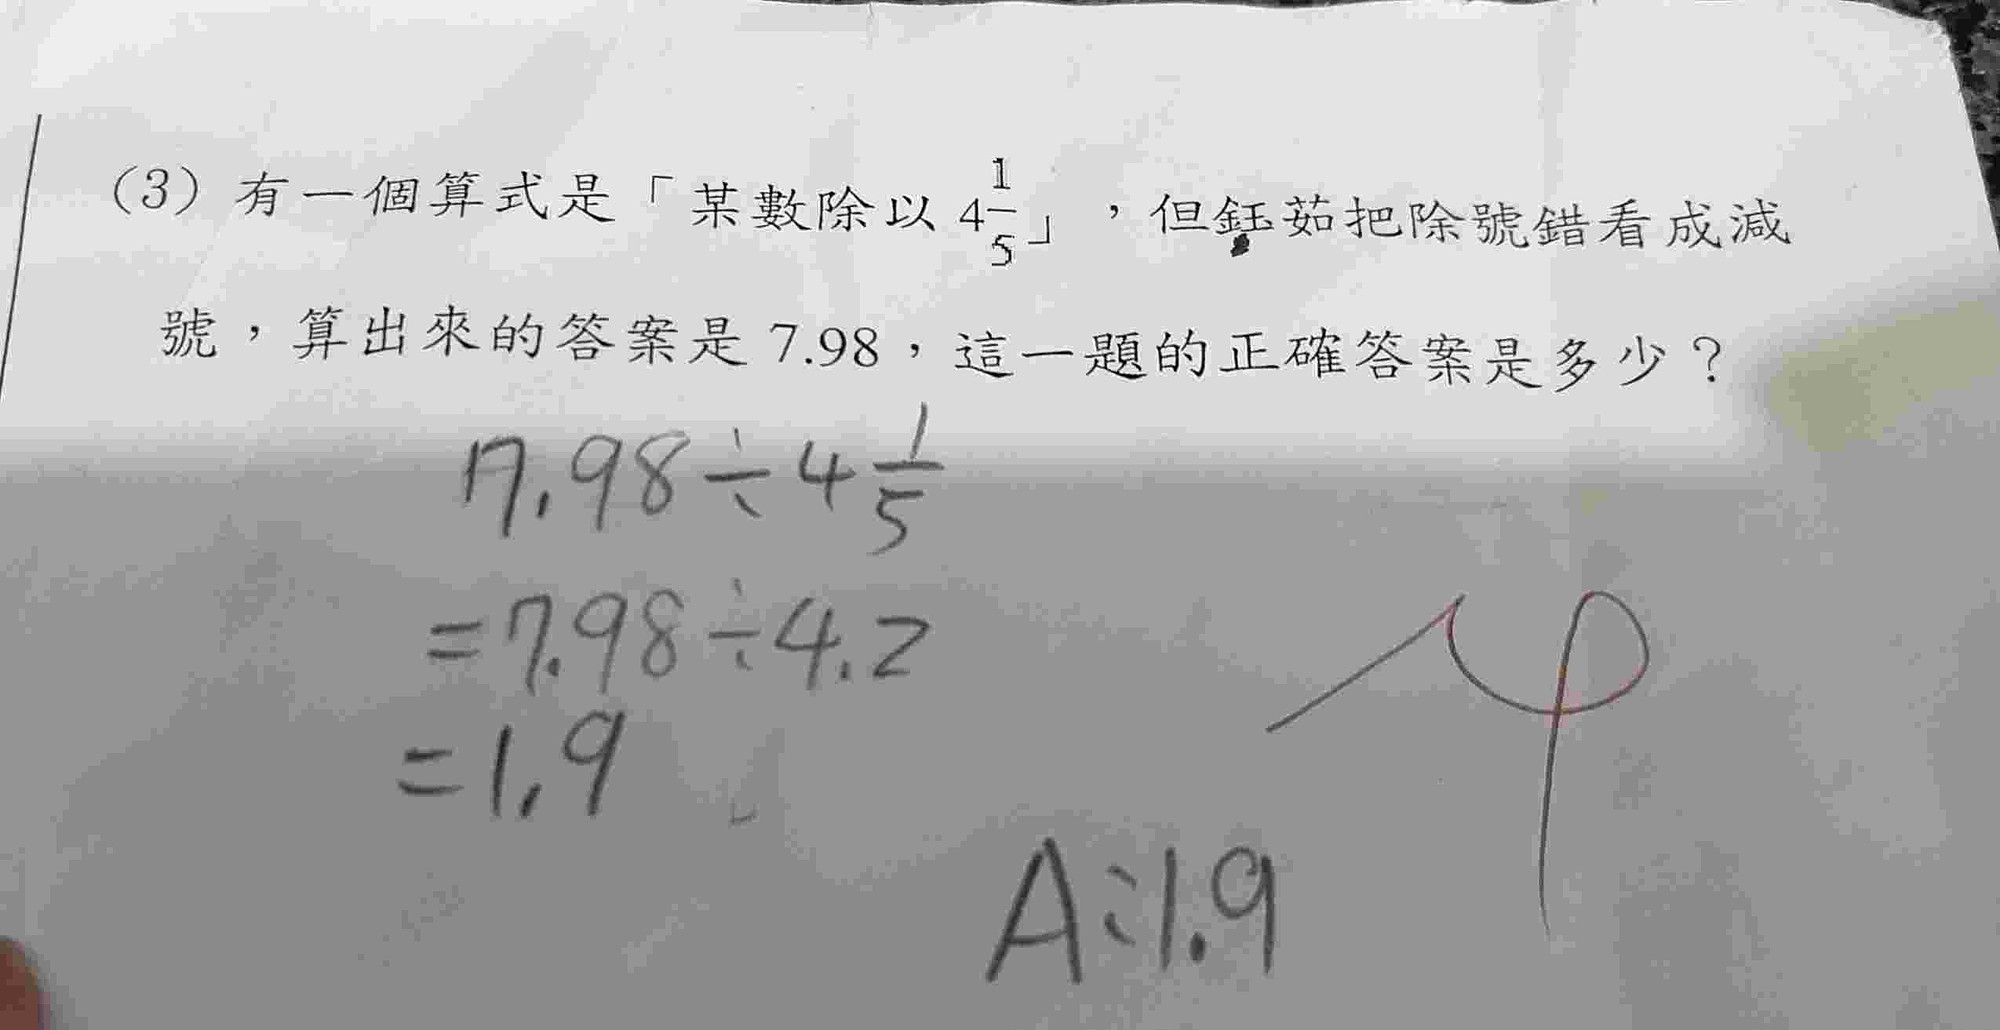 (3) 有一個算式是「某數除以 4 1/5」，但鈺茹把除號錯看成減
號，算出來的答案是 7.98，這一題的正確答案是多少？
7.98÷4 1/5
=7.98÷4.2
=1.9
A:1.9